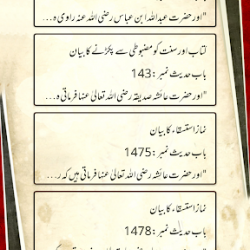 "اور حضرت عبداللہ ابن عباس رضی اللہ عنہ راوی ہ...
کتاب اور سنت کو مضبوطی سے پکڑنے کا بیان
باب حدیث نمبر : 143
"اور حضرت عائشہ صدیقہ رضی اللہ تعالیٰ عنہا فرماتی ہ...
نماز استسقاء کا بیان
باب حدیث نمبر : 1475
"اور حضرت عائشہ رضی اللہ تعالیٰ عنہا فرماتی ہیں کہ ر...
نماز استسقاء کا بیان
باب حدیث نمبر : 1478